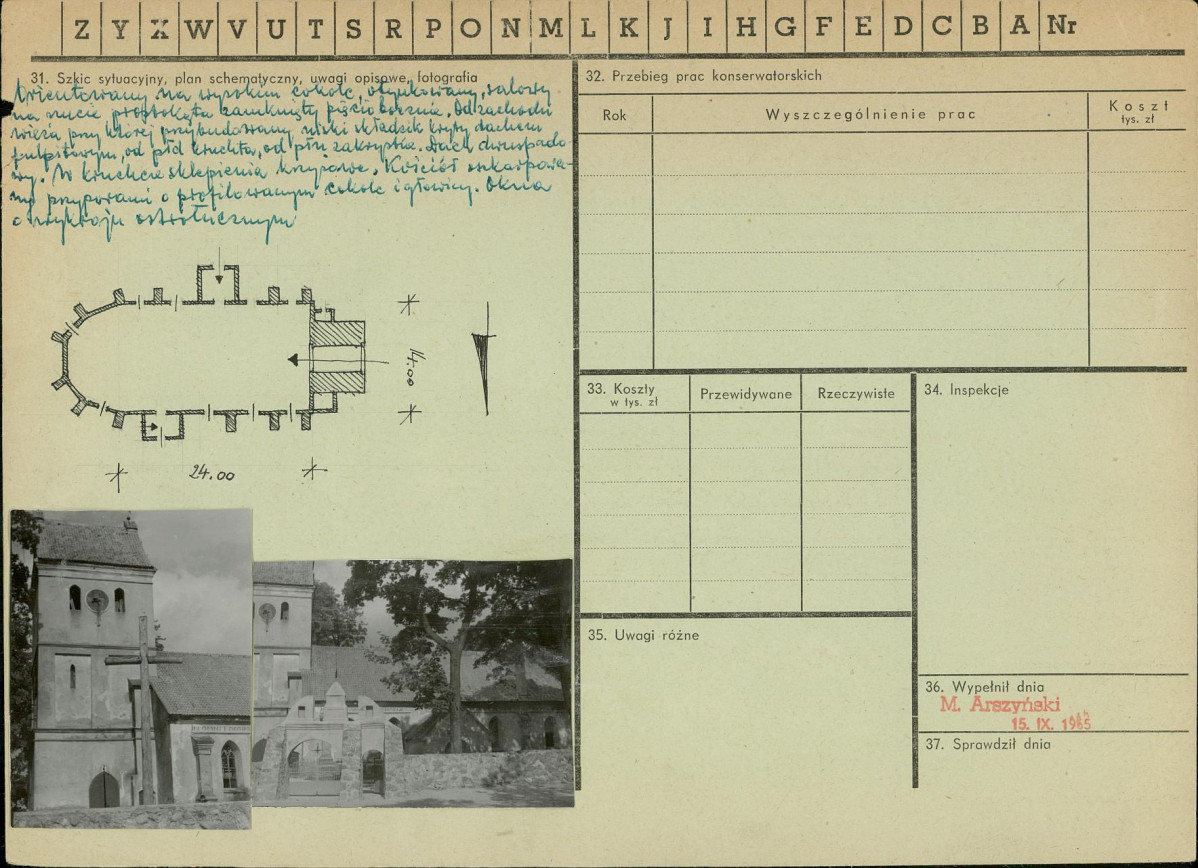 Z Y X W V U T S R P O N M L K J I H G F E D C B A Nr
31. Szkic sytuacyjny, plan schematyczny, uwagi opisowe, fotografia
Orientowany na wysokim cokole, otynkowany, salowy
na rzucie prostokąta zamknięty pięciobocznie. Od zachodu
wieża przy której przybudowany niski składzik kryty dachem
pulpitowym, od płd kruchta, od płn zakrystia. Dach dwuspado-
wy. W kruchcie sklepienia krzyżowe. Kościół oskarpowa-
ny przyporami o profilowanym cokole i głowicy. Okna
o wykroju ostrołucznym
14.00
24.00
32. Przebieg prac konserwatorskich
Rok
Wyszczególnienie prac
Koszt
tys. zł
33. Koszty
w tys. zł
Przewidywane
Rzeczywiste
34. Inspekcje
35. Uwagi różne
36. Wypełnił dnia
M. Arszyński
15. IX. 1965
37. Sprawdził dnia